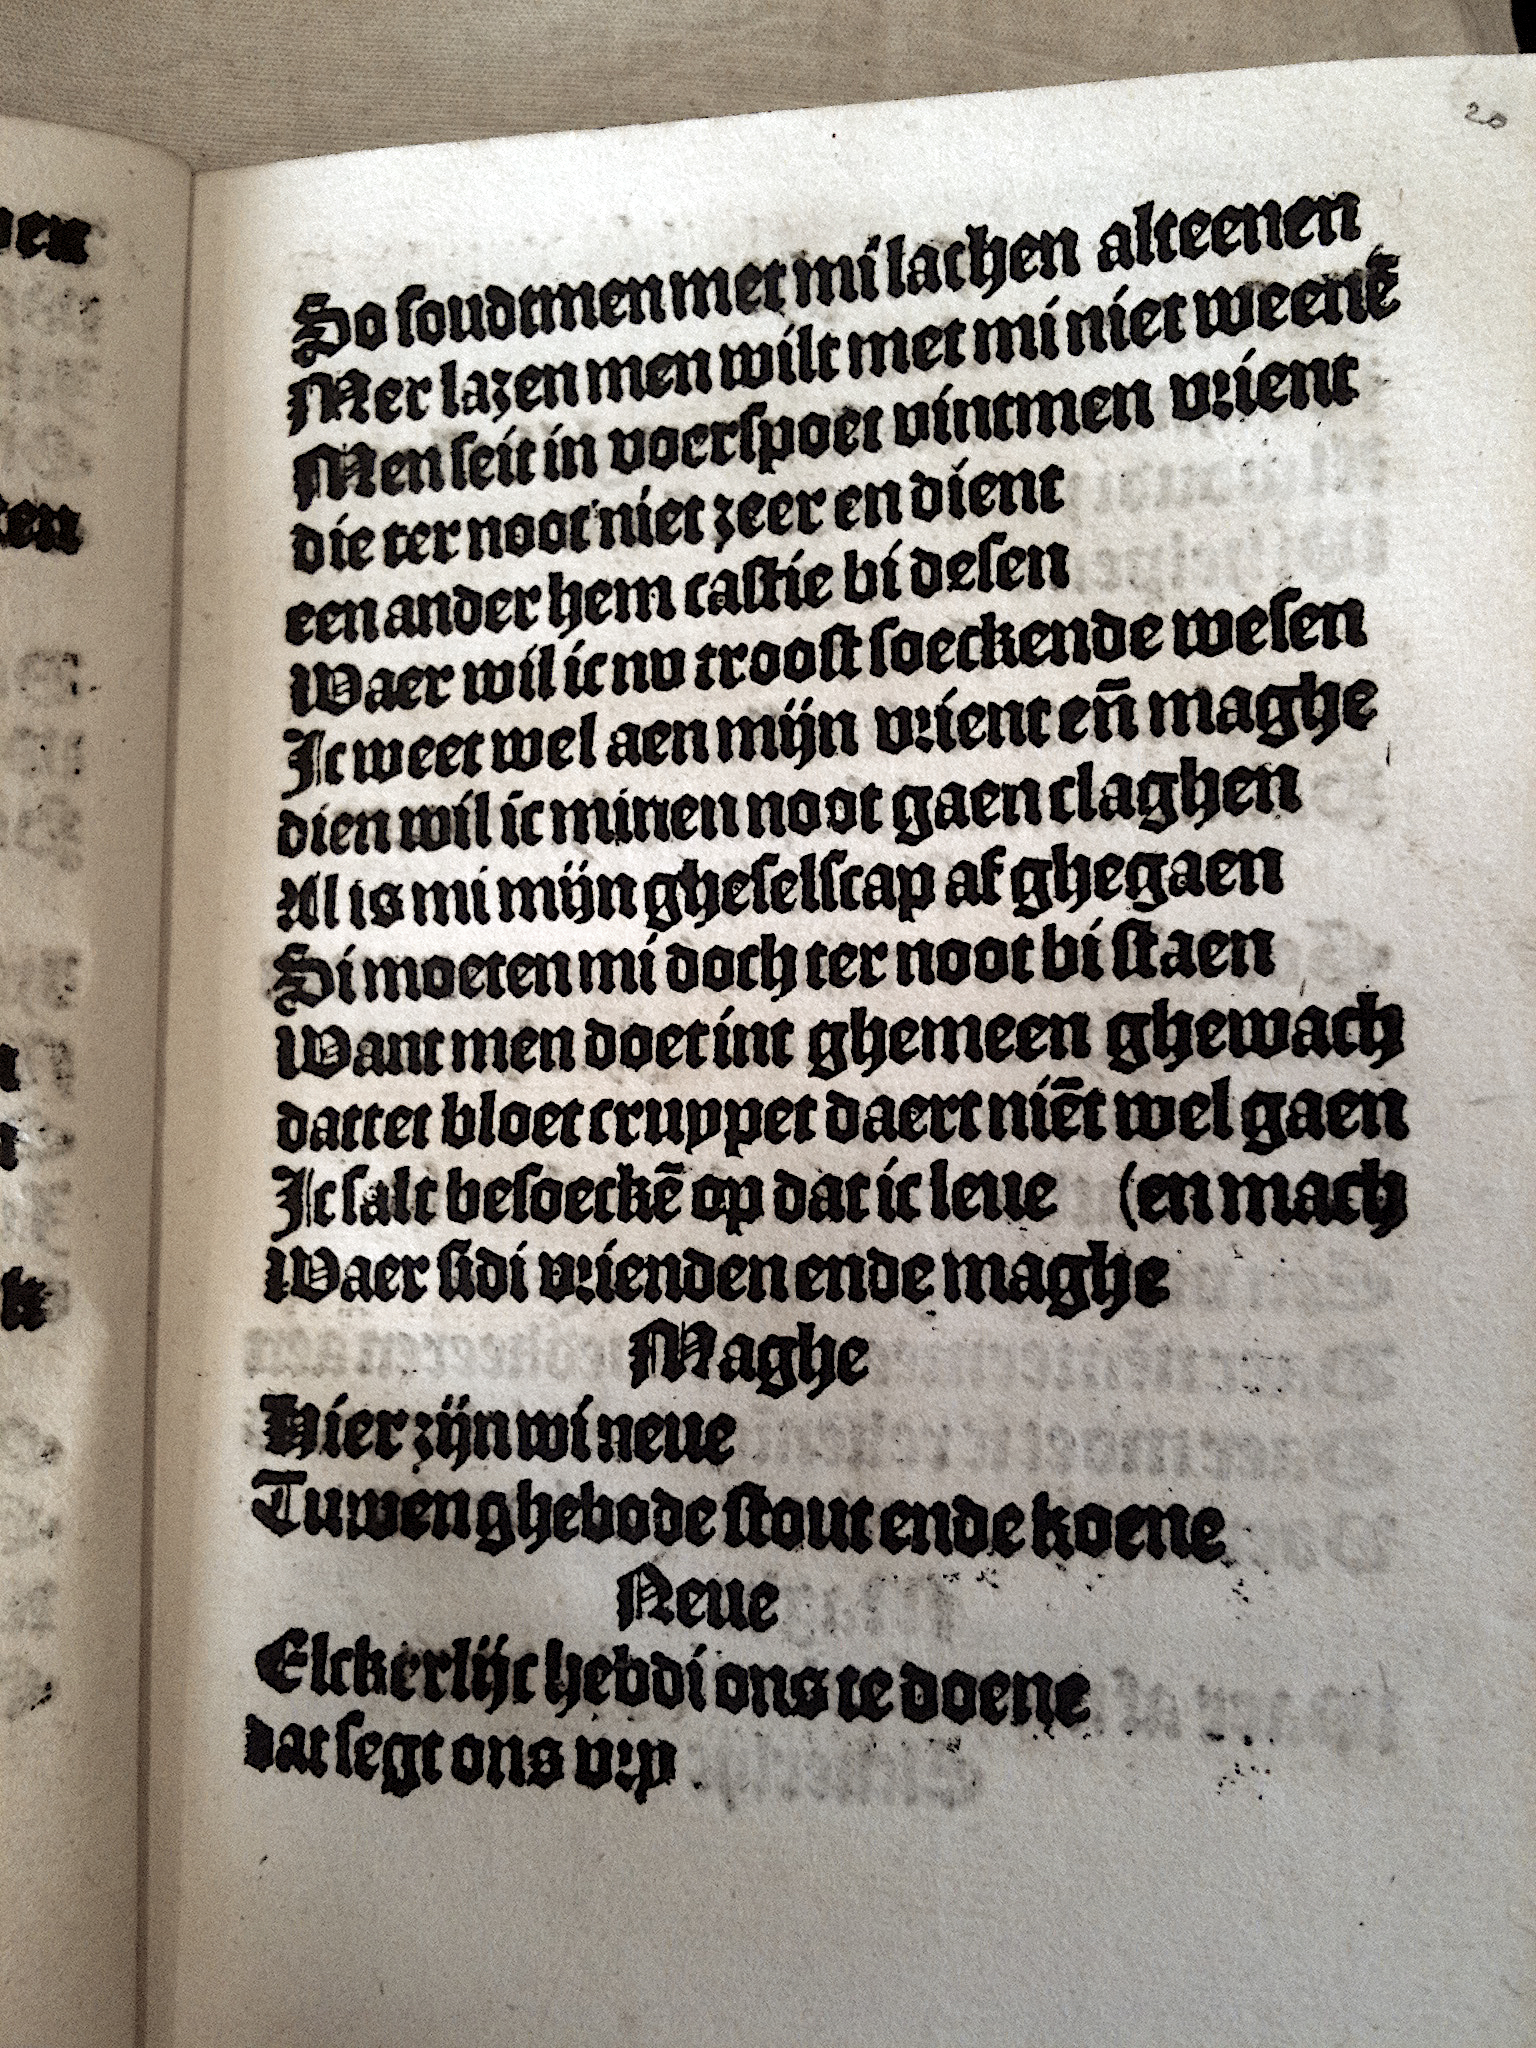 20
So soudtmen met mi lachen alteenen
Mer lazen men wilt met mi niet weenē
Men seit in voerspoet vintmen vrient
die ter noot niet zeer en dient
een ander hem castie bi desen
Waer wil ic nv troost soeckende wesen
Ic weet wel aen mijn vrient eñ maghe
dien wil ic minen noot gaen claghen
Al is mi mijn gheselscap af ghegaen
Si moeten mi doch ter noot bi staen
Want men doet int ghemeen ghewach
dattet bloet cruypet daert niēt wel gaen
Ic salt besoeckē op dat ic leue (en mach
Waer sidi vrienden ende maghe
Maghe
Hier zijn wi neue
Tuwen ghebode stout ende koene
Neue
Elckerlijc hebdi ons te doene
dat segt ons vrp